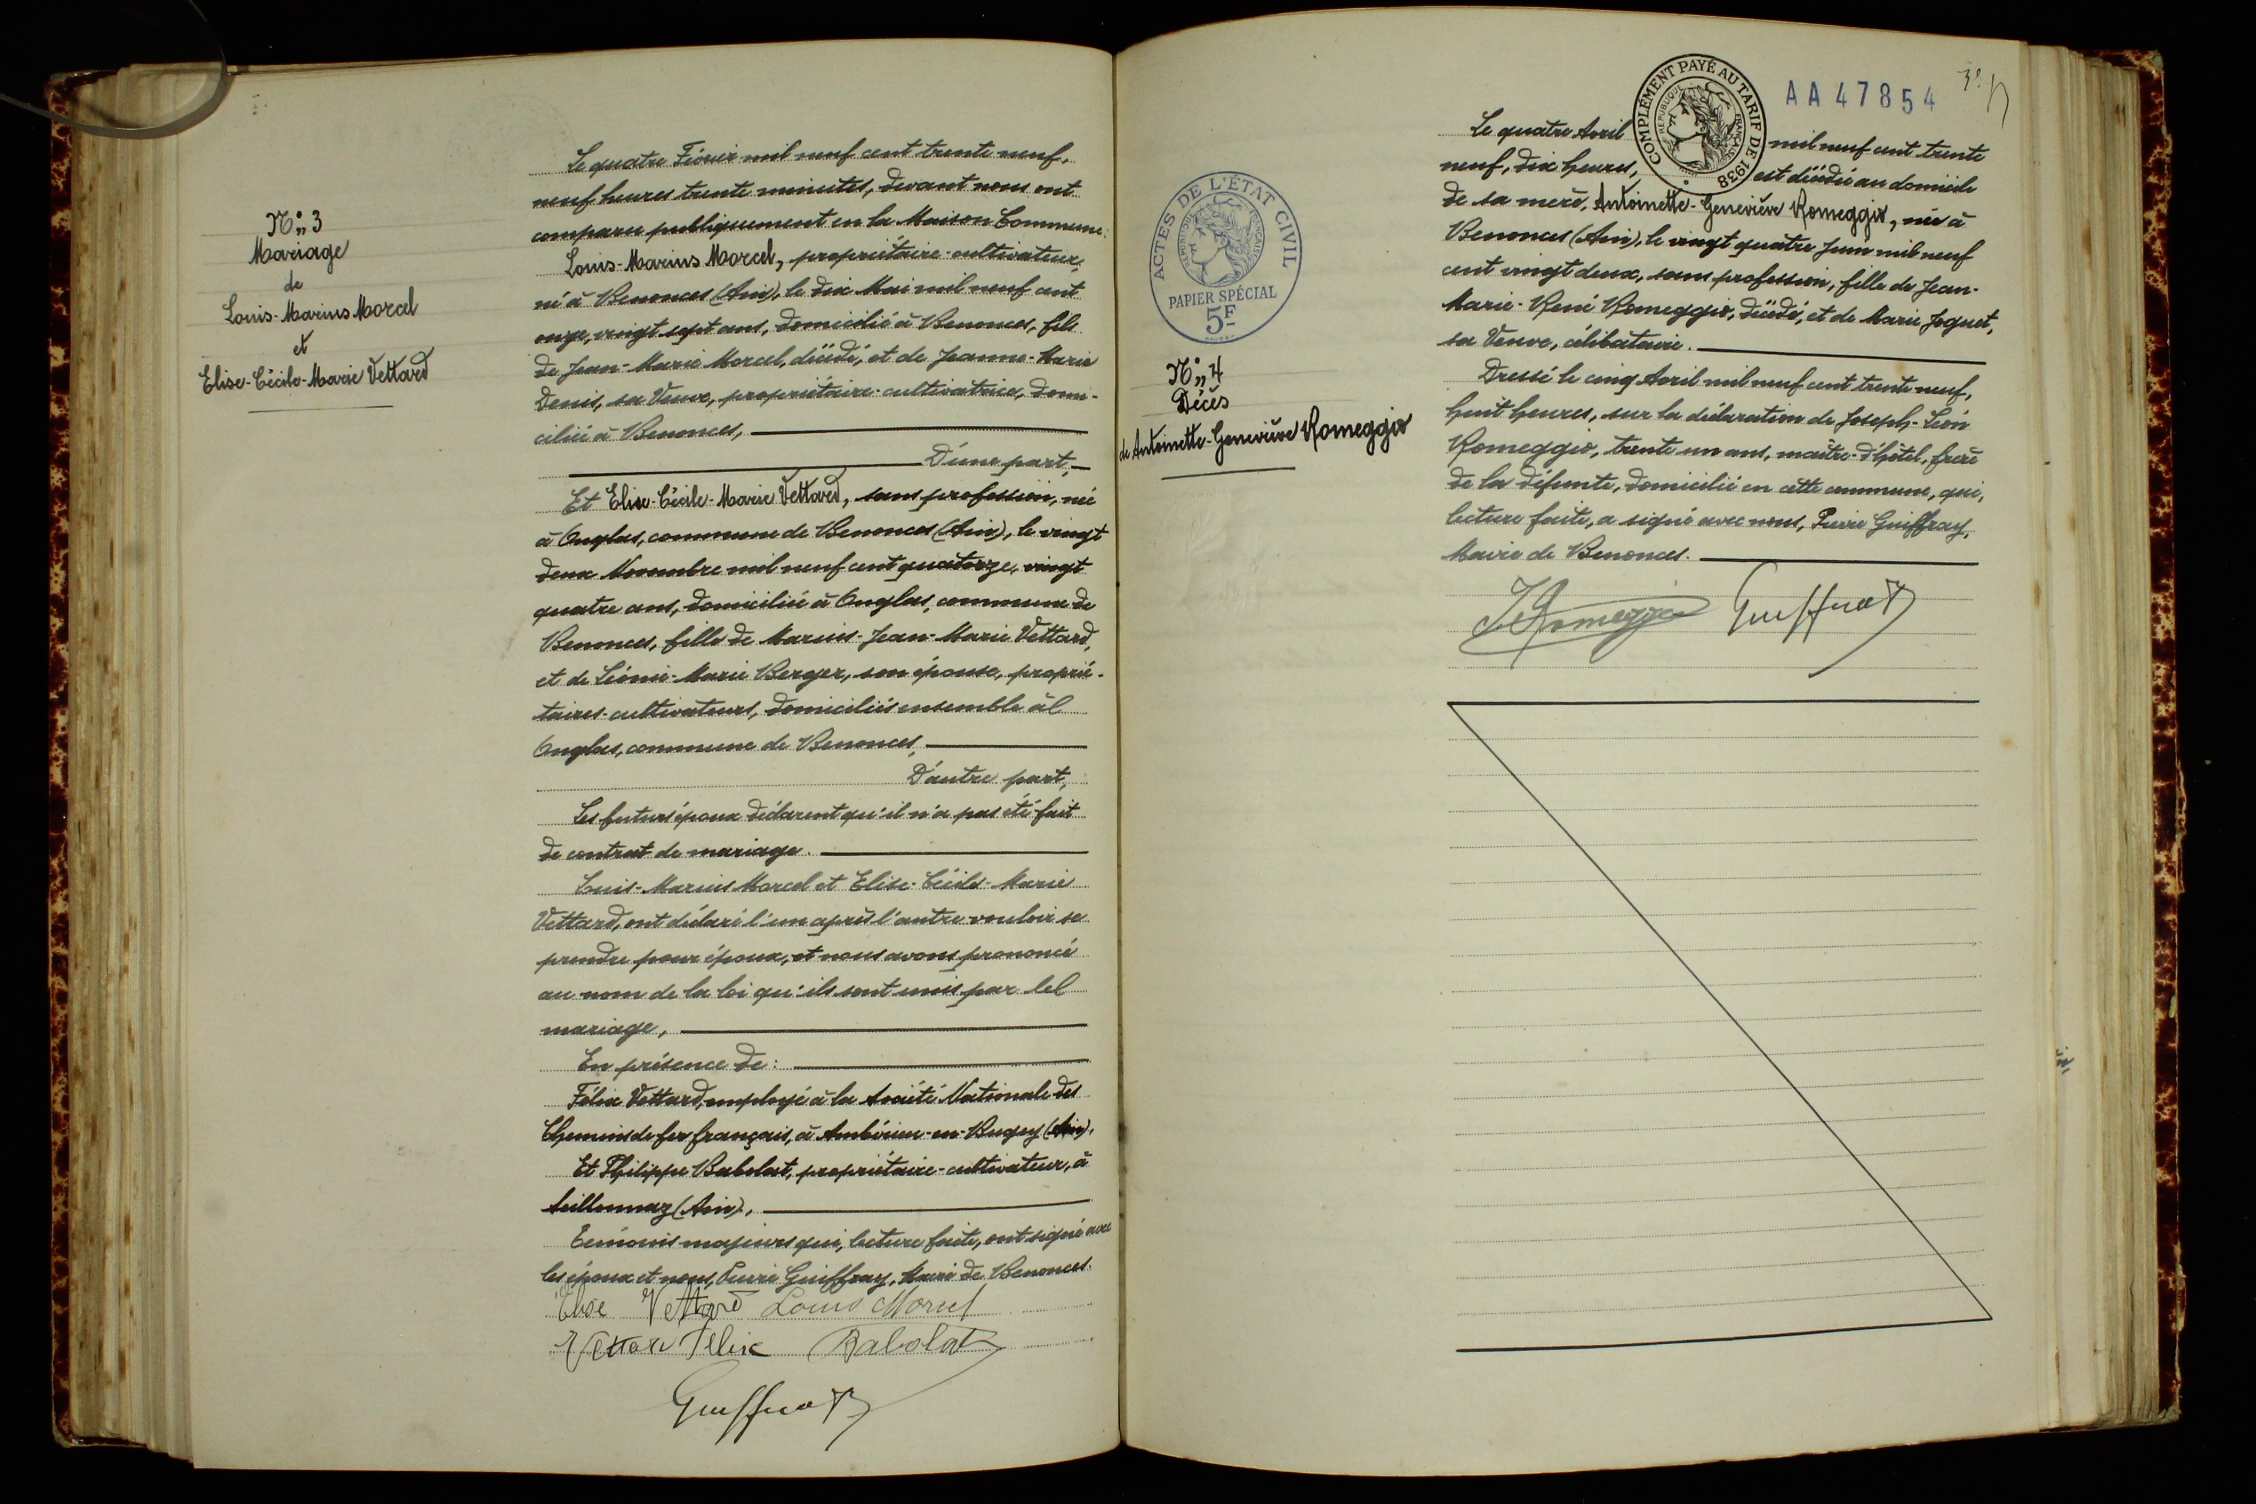 N° 3
Mariage
de
Louis-Marius Morcel
et
Elise-Cécile-Marie Vettard
Le quatre Février mil neuf cent trente neuf,
neuf heures trente minutes, devant nous ont
comparu publiquement en la Maison Commune:
Louis-Marius Morcel, propriétaire-cultivateur,
né à Benonces (Ain), le dix Mai mil neuf cent
onze, vingt sept ans, domicilié à Benonces, fils
de Jean-Marie Morcel, décédé, et de Jeanne-Marie
Denis, sa Veuve, propriétaire-cultivatrice, domi-
ciliée à Benonces,
D'une part,
Et Elise-Cécile-Marie Vettard, sans profession, née
à Onglas, commune de Benonces (Ain), le vingt
deux Novembre mil neuf cent quatorze, vingt
quatre ans, domiciliée à Onglas, commune de
Benonces, fille de Marius-Jean-Marie Vettard,
et de Léonie-Marie Berger, son épouse, proprié-
taires-cultivateurs, domiciliés ensemble à
Onglas, commune de Benonces,
D'autre part,
Les futurs époux déclarent qu'il n'a pas été fait
de contrat de mariage.
Louis-Marius Morcel et Elise-Cécile-Marie
Vettard, ont déclaré l'un après l'autre vouloir se
prendre pour époux, et nous avons prononcé
au nom de la loi qu'ils sont unis par le
mariage,
En présence de:
Félix Vettard, employé à la Société Nationale des
Chemins de fer français, à Ambérieu-en-Bugey (Ain),
Et Philippe Babolat, propriétaire-cultivateur, à
Seillonnaz (Ain),
Témoins majeurs qui, lecture faite, ont signé avec
les époux et nous, Pierre Guiffray, Maire de Benonces.
Elise Vettard Louis Morcel
Vettard Félix Babolat
Guiffray
ACTES DE L'ÉTAT CIVIL
RÉPUBLIQUE FRANÇAISE
PAPIER SPÉCIAL
5F
N° 4
Décès
de Antoinette-Geneviève Romeggio
COMPLÉMENT PAYÉ AU TARIF DE 1938
RÉPUBLIQUE FRANÇAISE
AA 47854
Le quatre Avril mil neuf cent trente
neuf, dix heures, est décédée au domicile
de sa mère, Antoinette-Geneviève Romeggio, née à
Benonces (Ain), le vingt quatre Juin mil neuf
cent vingt deux, sans profession, fille de Jean-
Marie-René Romeggio, décédé, et de Marie Joguet,
sa Veuve, célibataire.
Dressé le cinq Avril mil neuf cent trente neuf,
huit heures, sur la déclaration de Joseph-Léon
Romeggio, trente un ans, maître-d'hôtel, frère
de la défunte, domicilié en cette commune, qui,
lecture faite, a signé avec nous, Pierre Guiffray,
Maire de Benonces.
Romeggio Guiffray